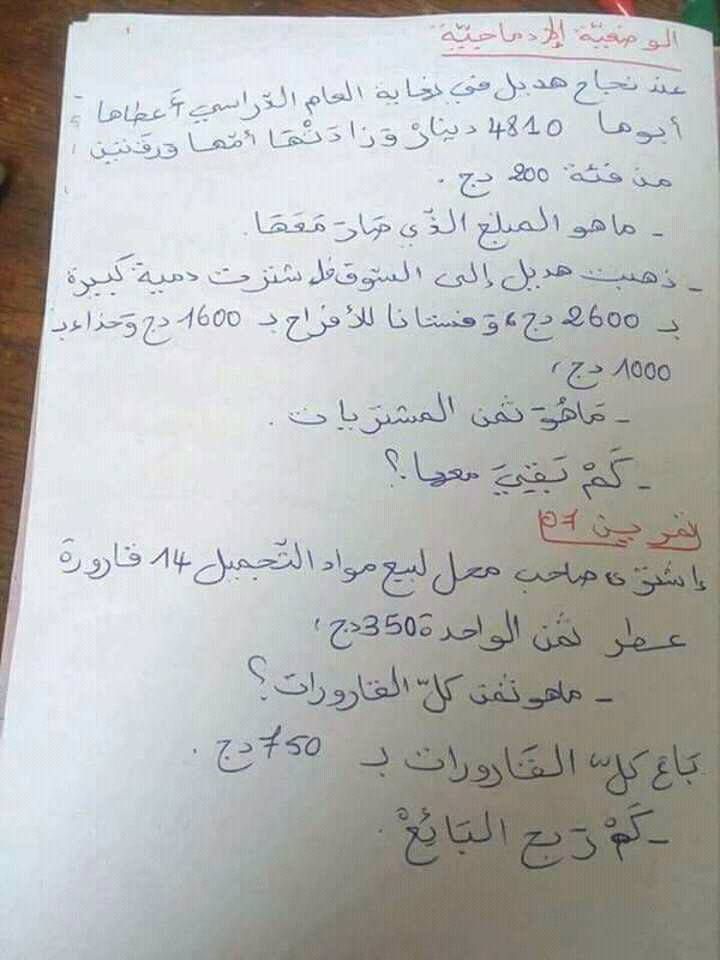 الوضعيّة الإدماجيّة
عند نجاح هديل في نهاية العام الدّراسي أعطاها
أبوها 4810 دينارْ وَزادَتْهَا أمّها ورقتين
من فئة 200 دج .
- ماهو المبلغ الذّي صَارَ مَعَهَا.
- ذهبت هديل إلى السّوق فاشترت دمية كبيرة
بـ 2600 دج، وَفستانا للأفراح بـ 1600 دج وَحذاء بـ
1000 دج،
- مَاهُوَ ثمن المشتريات .
- كَمْ بَقِيَ معها؟
تمرين 07
إشترى صاحب محل لبيع مواد التّجميل 14 قارورة
عطر ثمن الواحدة 350دج،
- ماهو ثمن كلّ القارورات؟
بَاع كلّ القَارورات بـ 750 دج .
- كَمْ رَبح البَائِعْ.